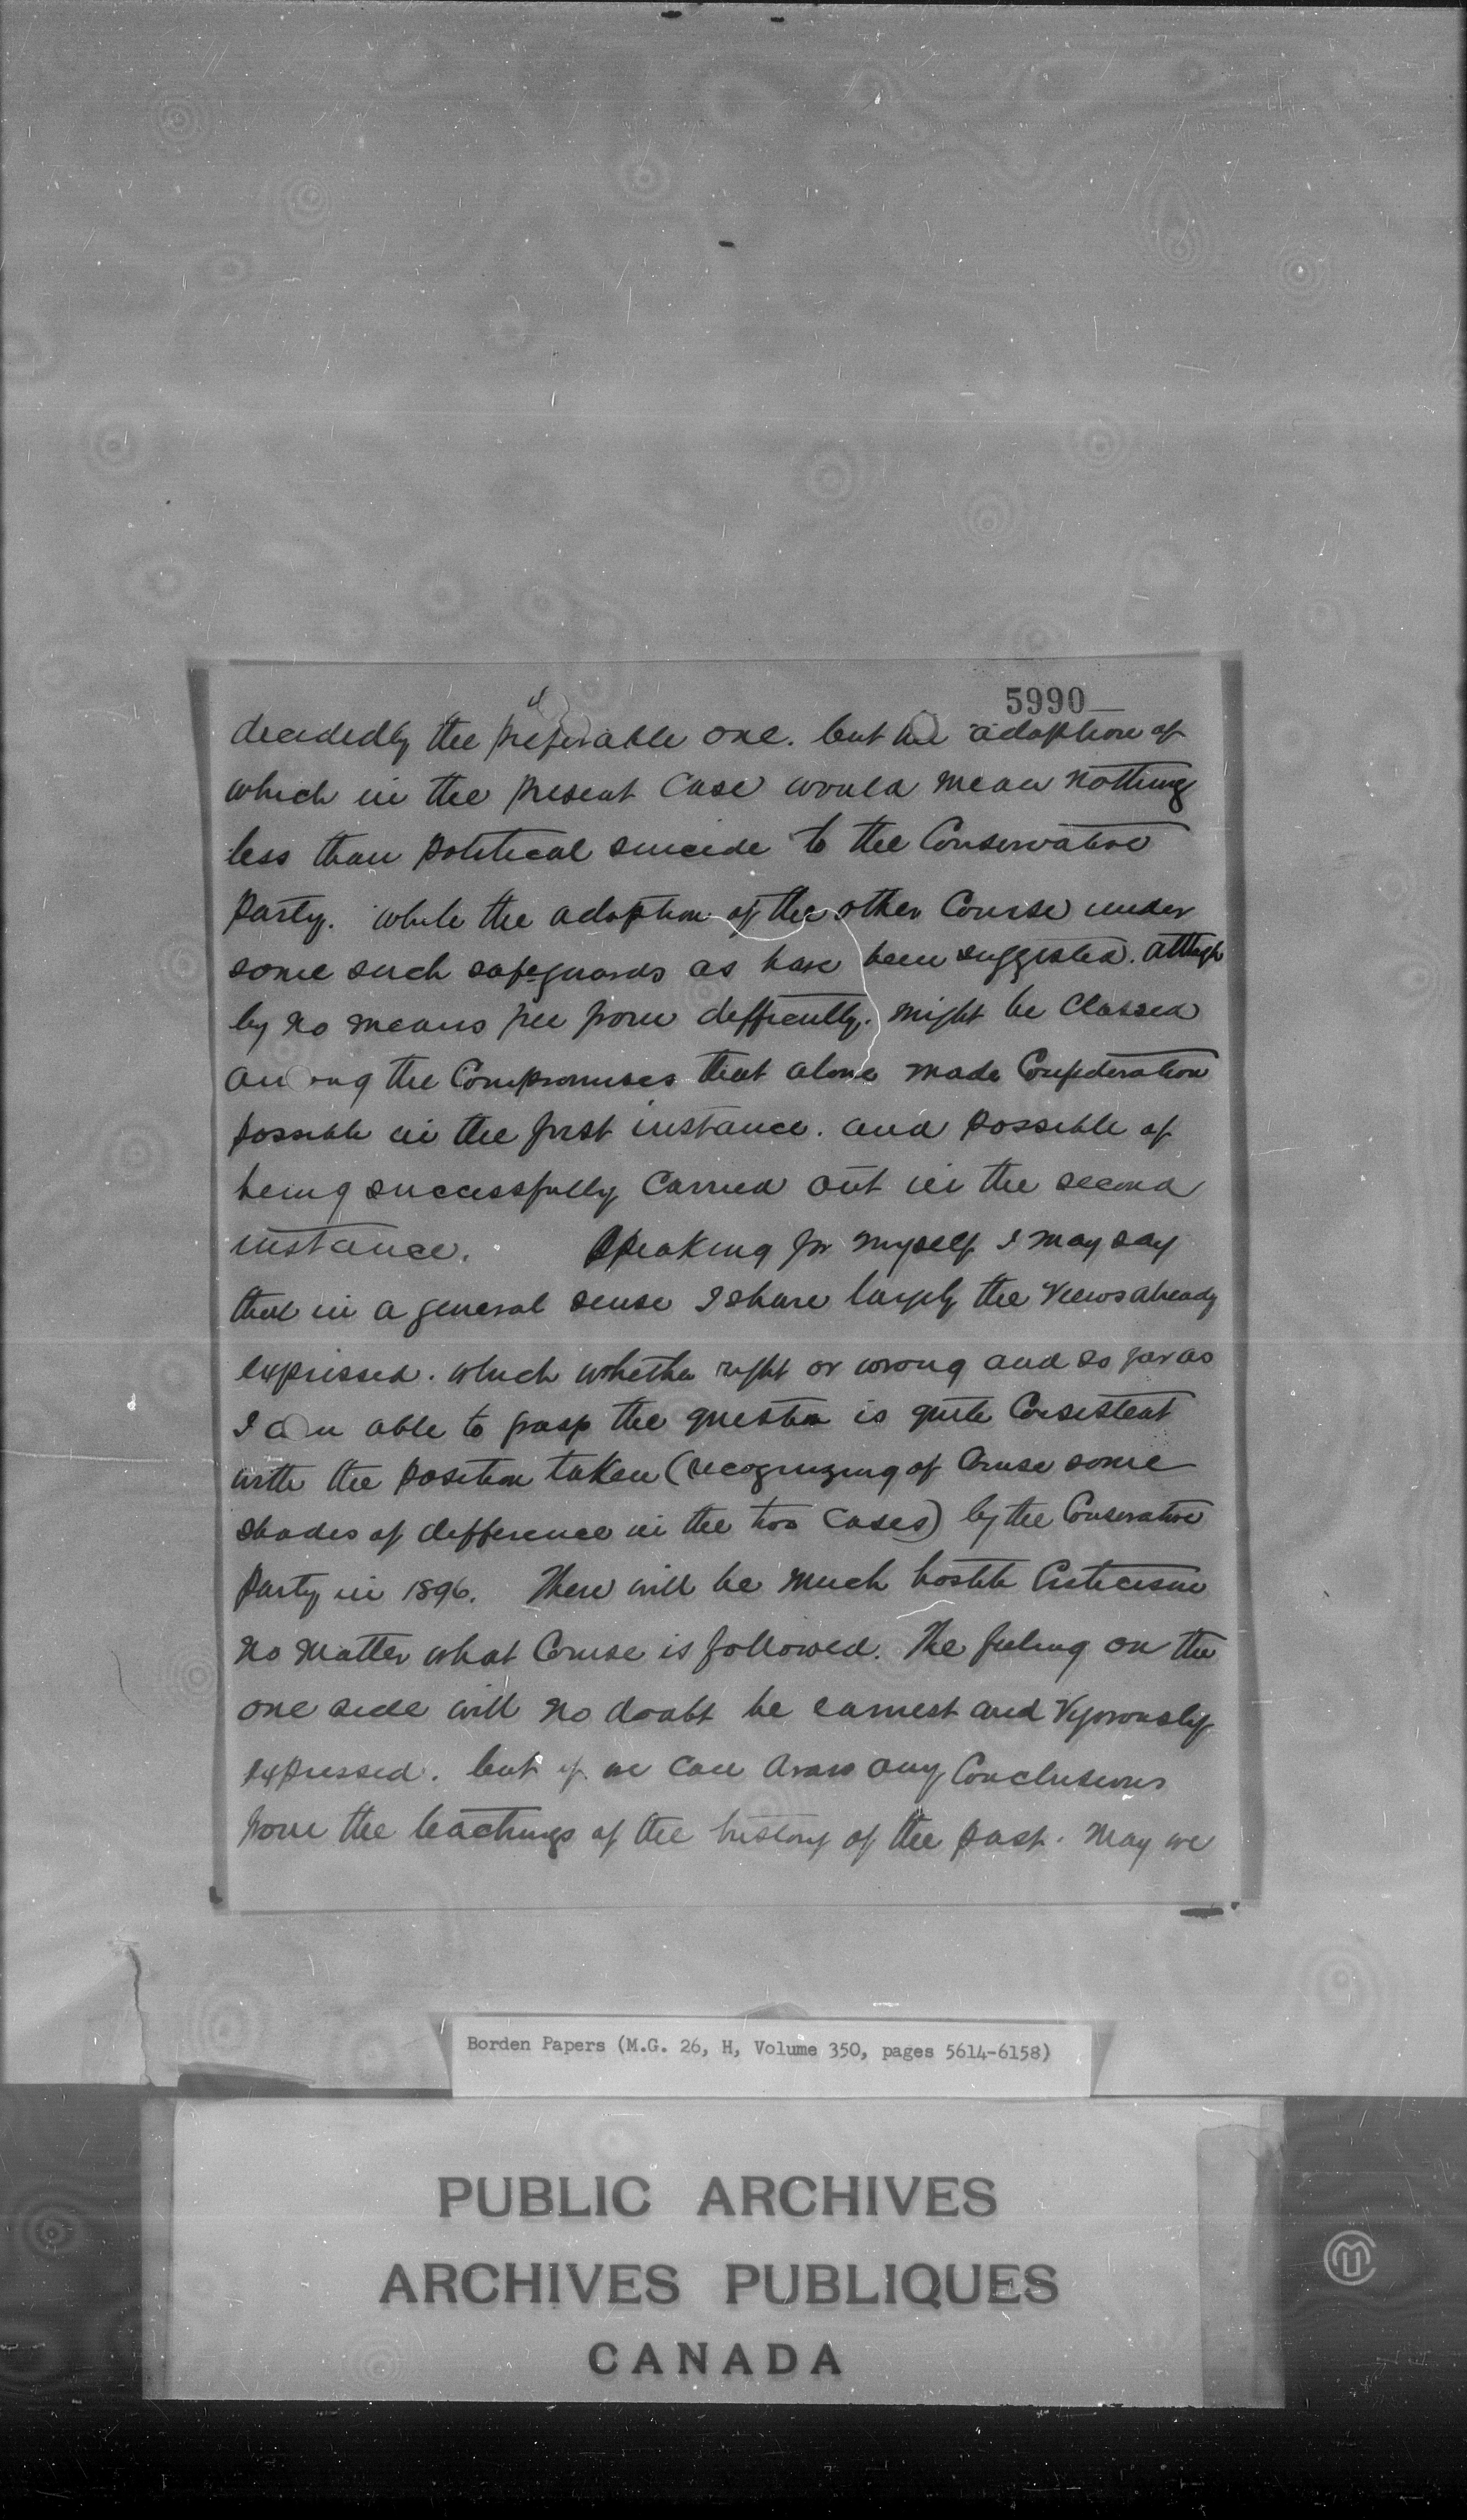 5990
decidedly the preferable one. but the adoption of
which in the present case would mean nothing
less than political suicide to the Conservative
Party. while the adoption of the other Course under
some such safeguards as have been suggested. although
by no means free from difficulty. might be Classed
among the Compromises that alone made Confederation
possible in the first instance. and possible of
being successfully Carried out in the second
instance. Speaking for myself I may say
that in a general sense I share largely the Views already
expressed. which whether right or wrong and so far as
I am able to grasp the question is quite Consistent
with the position taken (recognizing of Course some
shades of difference in the two Cases) by the Conservative
Party in 1896. There will be much hostile Criticism
no matter what Course is followed. The feeling on the
one side will no doubt be earnest and Vigorously
expressed. but if we can draw any Conclusions
from the teachings of the history of the past. May we
Borden Papers (M.G. 26, H, Volume 350, pages 5614-6158)
PUBLIC ARCHIVES
ARCHIVES PUBLIQUES
CANADA